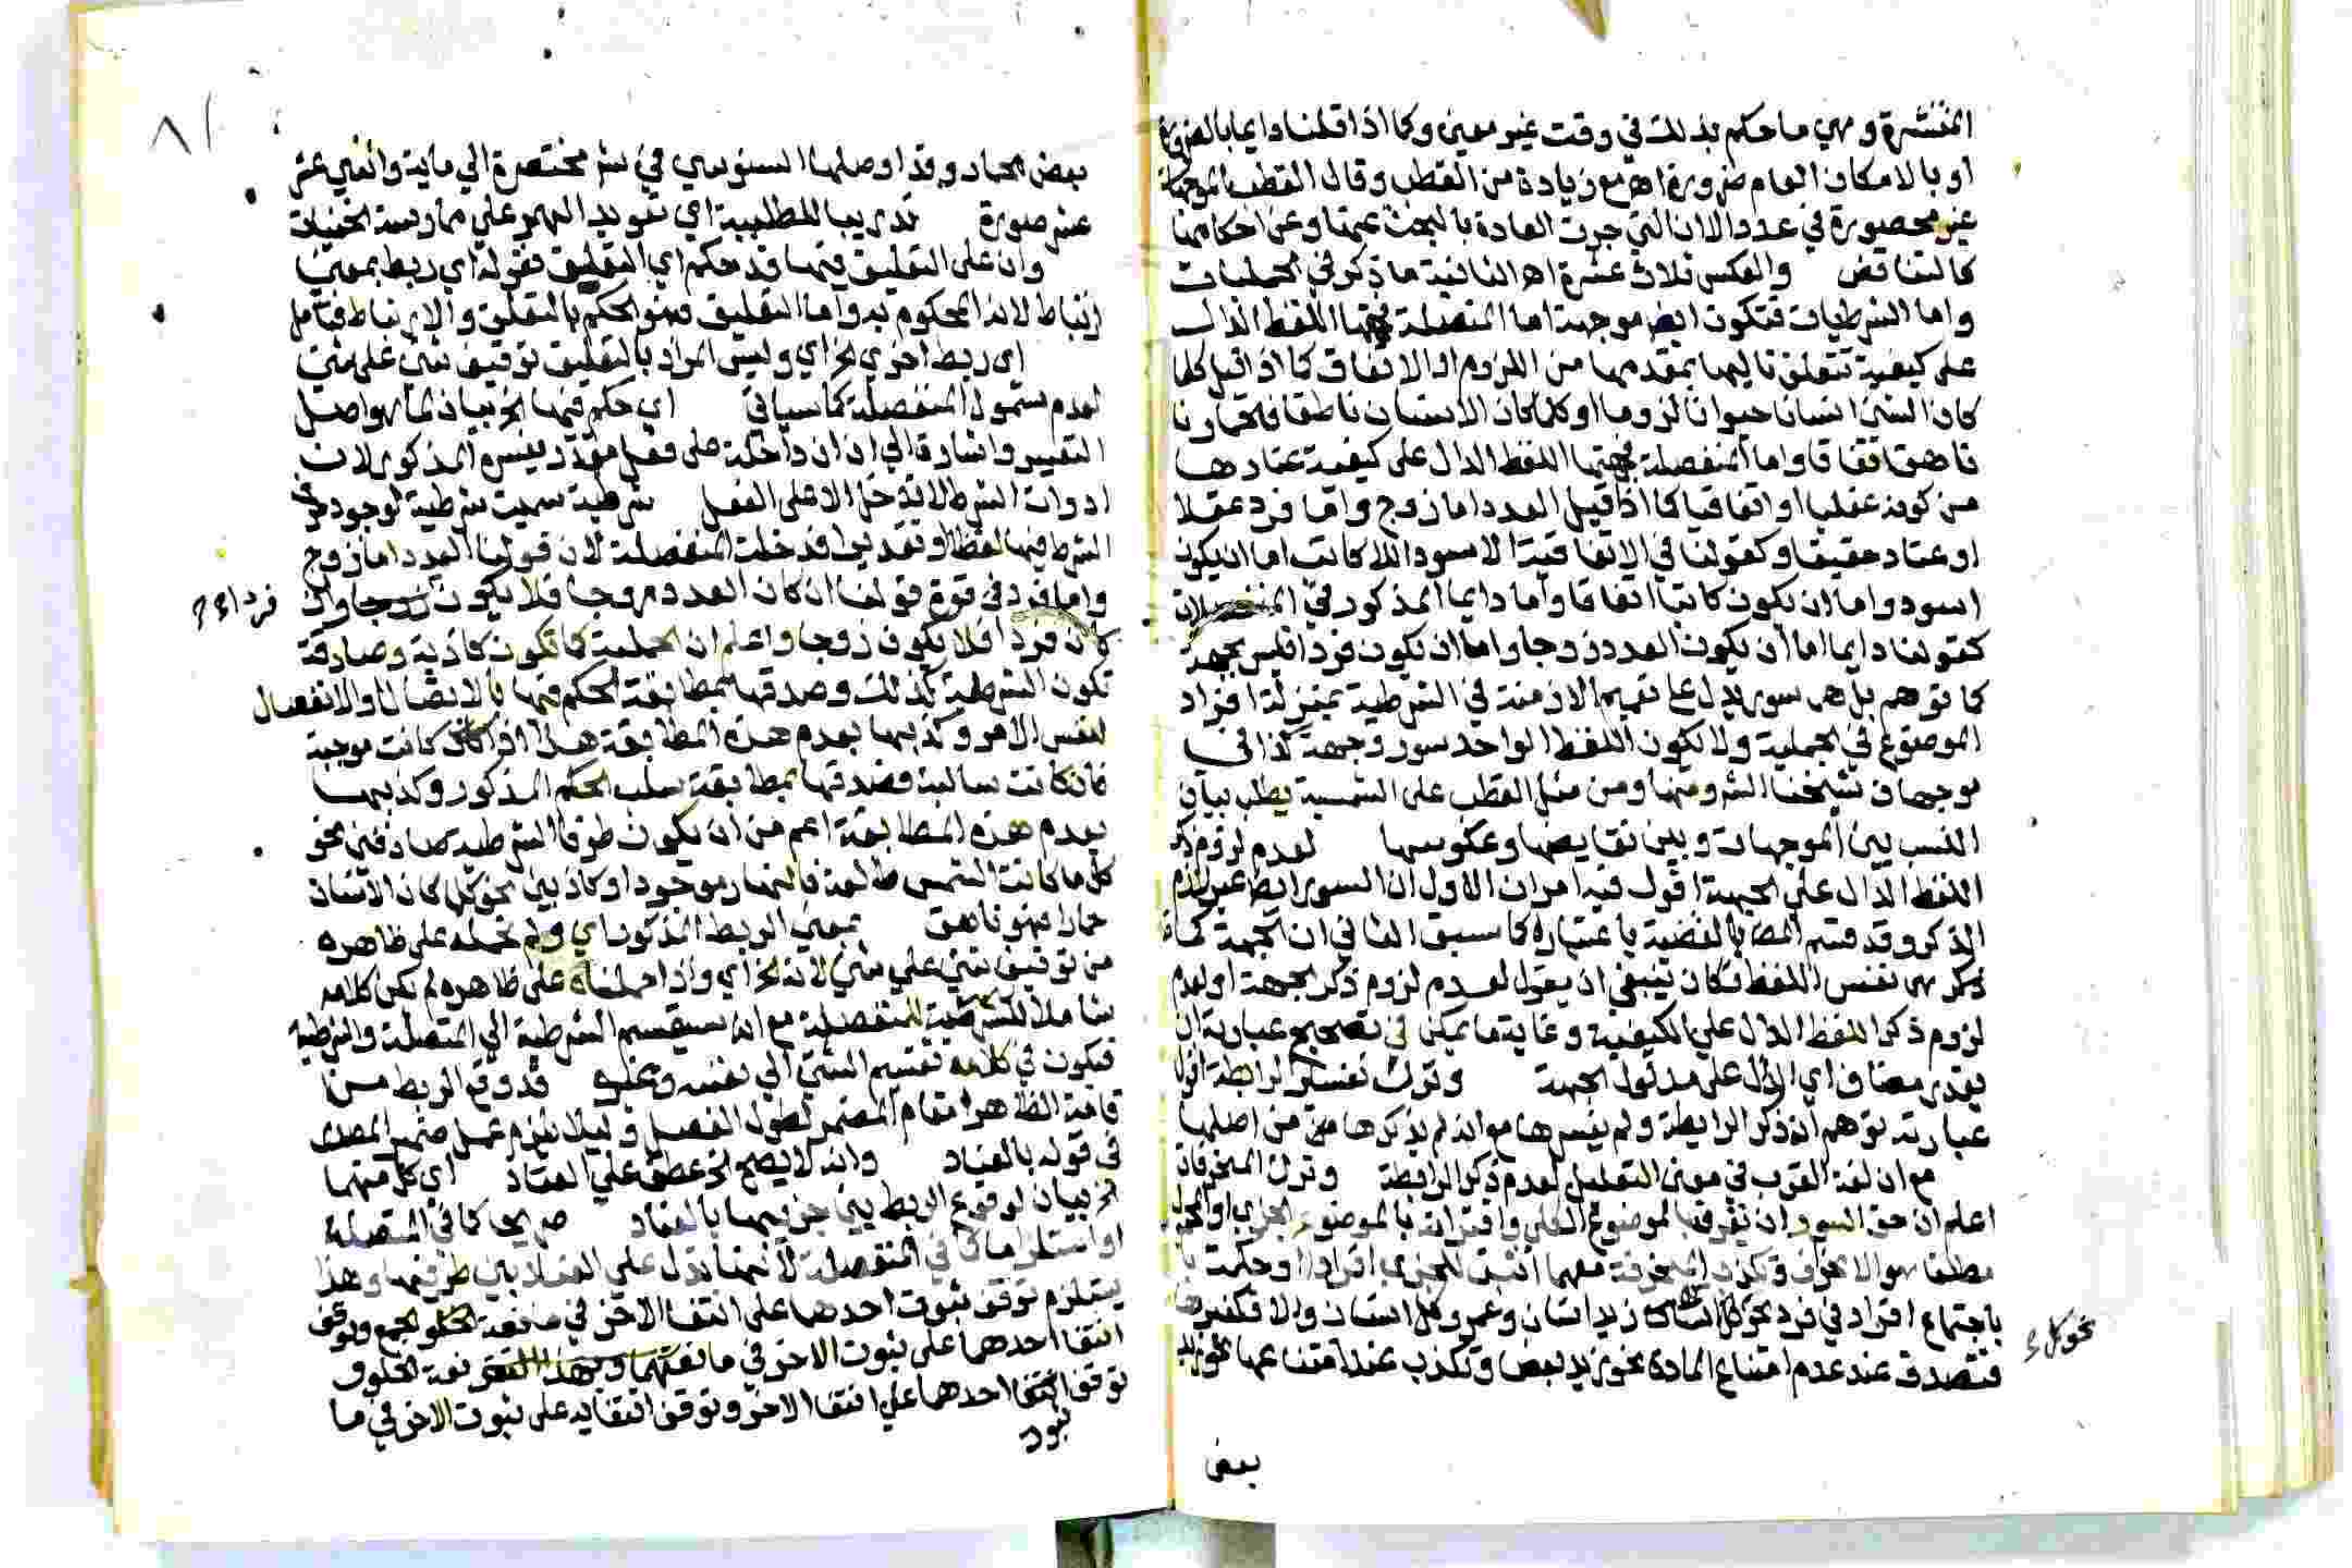 المنتشرة وهي ما حكم بذلك في وقت غير معين وكما اذا قلنا دايما بالضرورة
او بالامكان العام ضرورة اهـ مع زيادة من القطب وقال القطب الموجهات
غير محصورة في عدد الا ان التي جرت العادة بالبحث عنها وعن احكامها
كالتناقض والعكس ثلاث عشرة اهـ الثانية ما ذكر في الحمليات
واما الشرطيات فتكون ايضا موجهة اما المتصلة فجهتها اللفظ الدال
على كيفية تتعلق تاليها بمقدمها من اللزوم او الاتفاق كما اذا قيل كلما
كان الشي انسانا كان حيوانا لزوما او كلما كان الانسان ناطقا فالحمار نا
ناهق اتفاقا واما المنفصلة فجهتها اللفظ الدال على كيفية عنادها
من كونه عقليا او اتفاقيا كما اذا قيل العدد اما زوج واما فرد عقلا
او عناد حقيقيا وكقولنا في الاتفاقية الاسود اللا كاتب اما ان يكون
اسود واما ان يكون كاتبا اتفاقا واما دايما المذكور في المنفصلات
كقولنا دايما اما ان يكون العدد زوجا واما ان يكون فردا فليس بجهة
كما توهم بل هو سور يدل على تعميم الازمنة في الشرطية بمنزلة افراد
الموضوع في الحملية ولا يكون اللفظ الواحد سور وجهة كذا في
موجهات شيخنا الشر ومنها ومن مثل القطب على الشمسية يطلب بيان
النسب بين الموجهات وبين نقايضها وعكوسها لعدم لزوم ذكر
اللفظ الدال على الجهة اقول فيه امران الاول ان السور ايضا غير لازم
الذكر وقد قسم المص بالقضية باعتباره كما سبق الثاني ان الجهة كما
ذكر هي نفس اللفظ فكان ينبغي ان يقول لعدم لزوم ذكر الجهة او لعدم
لزوم ذكر اللفظ الدال على الكيفية وغاية ما يمكن في تصحيح عبارته ان
يقدر مضاف اي الدال على مدلول الجهة وترك تفسير الرابطة
عبارته توهم انه ذكر الرابطة ولم يفسرها مع انه لم يذكرها من اصلها
مع ان لغة العرب في معنى التعليل لعدم ذكر الرابطة وترك المنحرفات
اعلم ان حق السور ان يقرن بالموضوع الكلي واقترانه بالموضوع الجزي او المحمول
مطلقا هو الانحراف وتكذب المنحرفة مهما اثبت للجزي افرادا او حكمت
باجتماع افراد في فرد نحو كل زيد انسان وعمرو كل انسان والا فكغيرها
نحو كل
فتصدق عند عدم امتناع المادة نحو زيد بعض وتكذب عند امتناعها نحو زيد
بعض
٨١
بعض الجماد وقد اوصلها السنوسي في شر مختصرة الي ماية واثني عشر
عشر صورة تدريبا للطلبة اي تعويد الهم علي ممارسة الخفيات
وان على التعليق فيها قد حكم اي التعليق فقوله اي ربط بمعني
ارتباط لانه المحكوم به واما التعليق فهو الحكم بالتعلق والارتباط فتامل
اي ربط اخري الخ اي وليس المراد بالتعليق توقيف شي على شي
لعدم شمول المنفصلة كما سياتي اي حكم فيها الخ بيان لما هو اصل
التفسير واشارة الي ان ان داخلة على فعل مقدر يفسره المذكور لان
ادوات الشرط لا تدخل الا على الفعل شرطية سميت شرطية لوجود حرف
الشرط فيها لفظا او تقديرا فدخلت المنفصلة لان قولنا العدد اما زوج
واما فرد في قوة قولنا ان كان العدد زوجا فلا يكون زوجا وان
فردا
كان فردا فلا يكون زوجا واعلم ان الحملية كما تكون كاذبة وصادقة
تكون الشرطية كذلك وصدقها بمطابقة الحكم فيها بالاتصال والانفصال
لنفس الامر وكذبها بعدم هذه المطابقة هذا اذا كانت موجبة
فان كانت سالبة فصدقها بمطابقة سلب الحكم المذكور وكذبها
بعدم هذه المطابقة اعم من ان يكون طرفا الشرطية صادقين نحو
كل ما كانت الشمس طالعة فالنهار موجود او كاذبين نحو كل كان الانسان
حمارا فهو ناهق بمعني الربط المذكور اي ولم نحمله على ظاهره
من توقيف شي علي شي لانه الخ اي واذا حملناه على ظاهره لم يكن كلامه
شاملا للشرطية المنفصلة مع انه سيقسم الشرطية الي المتصلة والشرطية
فيكون في كلامه تقسيم الشي الي نفسه وغيره قد وقع الربط من
قامة الظاهر مقام المضمر لطول الفصل وليلا يلزم عمل ضمير المصدر
في قوله بالعناد وانه لا يصح الخ عطف علي العناد اي كل منهما
الخ بيان لوقوع الربط بين جزييها بالعناد صريحا كما في المتصلة
او استلزاما كما في المنفصلة لانها تدل علي العناد بين طرفيها وهذا
يستلزم توقف ثبوت احدهما على انتفا الاخر في مانعة الخلو الجمع وتوقف
انتفا احدهما على ثبوت الاخر في مانعتهما وبهذا نعة الخلو و
توقف انتفا احدهما علي انتفا الاخر وتوقف انتفايه على ثبوت الاخر في ما
ثبوت